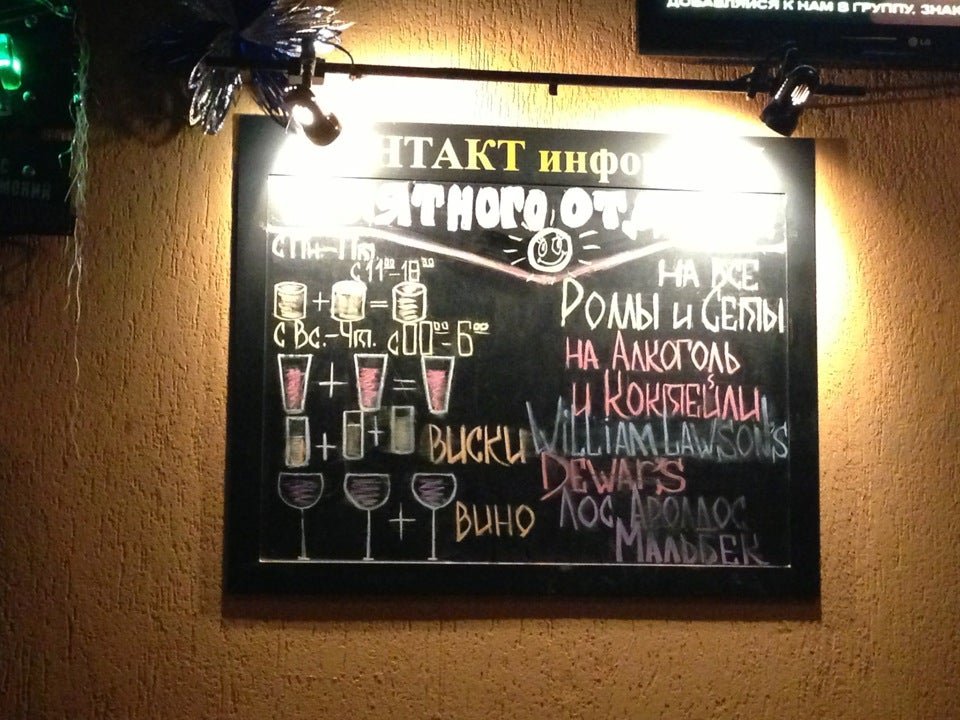 ДОБАВЛЯЙСЯ К НАМ В ГРУППУ, ЗНАК
LG
НТАКТ инфо
ЯТНОГО ОТД
с Пн.-Пт.
с 11⁰⁰-18³⁰
+ =
с Вс.-Чт. с 00⁰⁰-6⁰⁰
+ =
+ + ВИСКИ
+ ВИНО
НА ВСЕ
РОМЫ и СЕТЫ
НА АЛКОГОЛЬ
и КОКТЕЙЛИ
WILLIAM LAWSON'S
DEWAR'S
ЛОС АРОЛДОС
МАЛЬБЕК